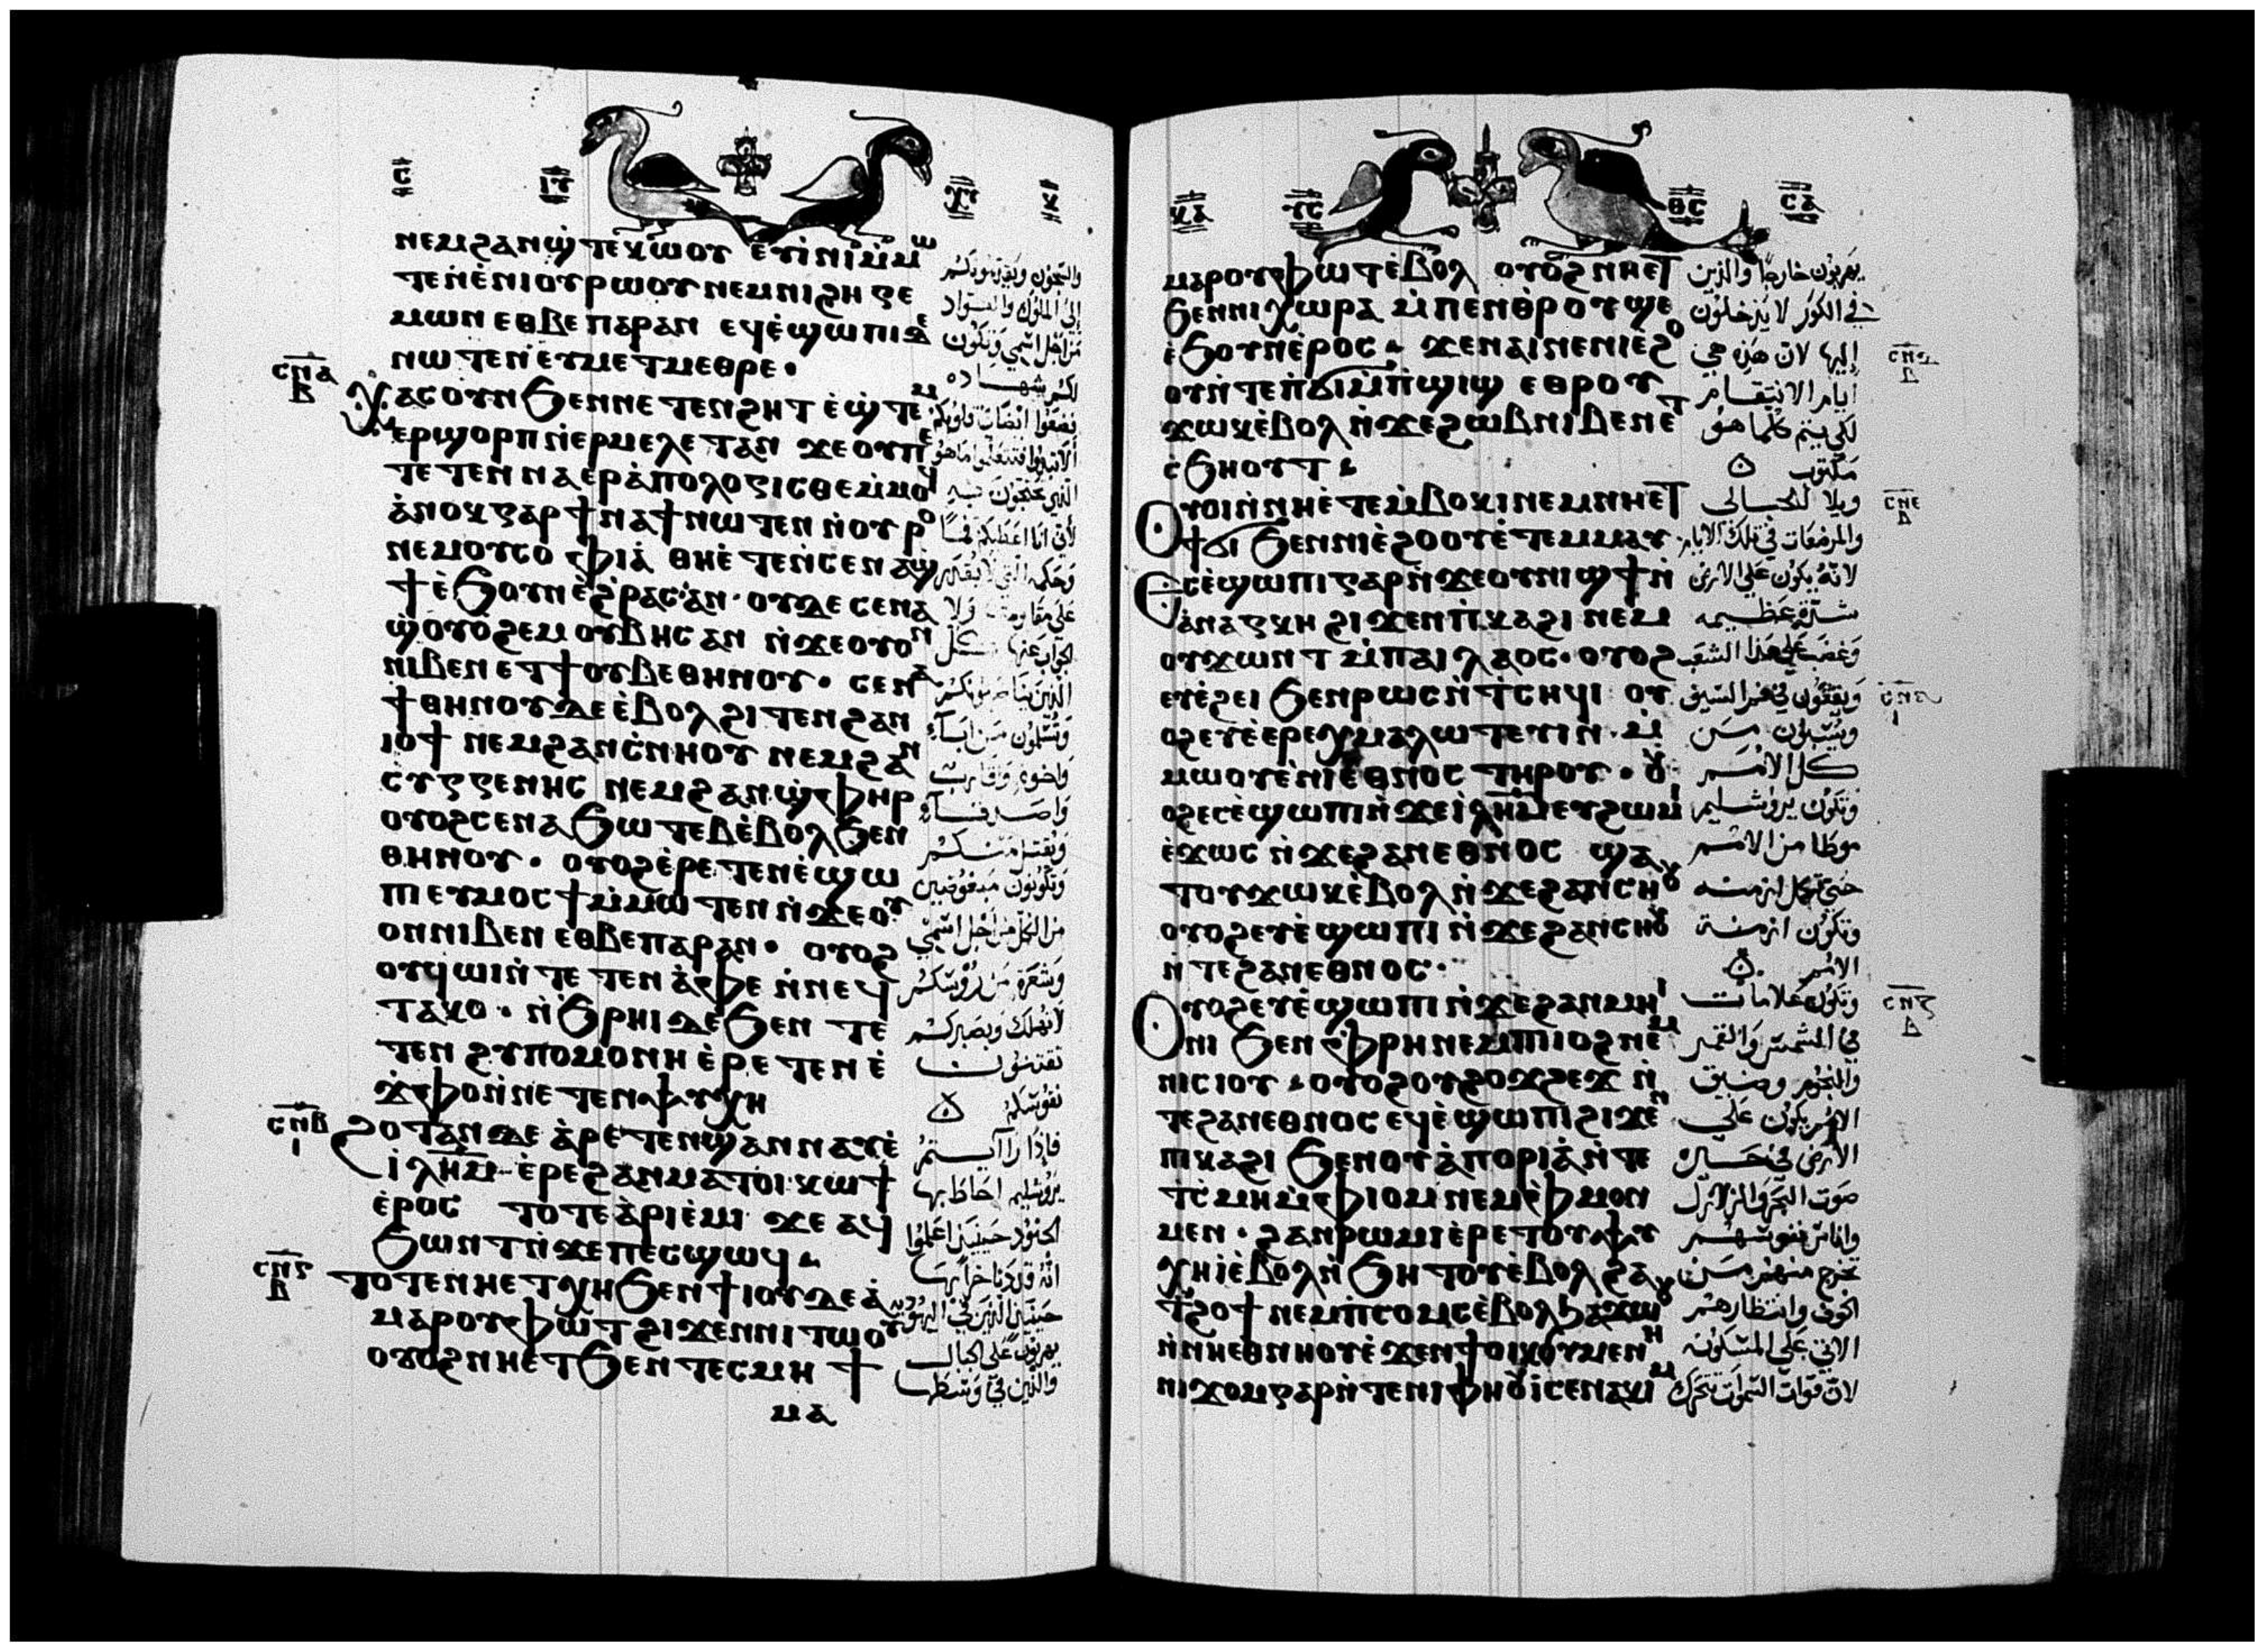 ⲋ̅ ⲓⲩ̅ ⲭⲩ̅ ⲕ̅
ⲛⲉⲙϩⲁⲛϣ̀ⲧⲉⲕⲱⲟⲩ ⲉⲩⲓ̀ⲛⲓⲙ̀ⲙⲱ
ⲧⲉⲛⲉ̀ⲛⲓⲟⲩⲣⲱⲟⲩ ⲛⲉⲙⲛⲓϩⲏⲅⲉ
ⲙⲱⲛ ⲉⲑⲃⲉⲡⲁⲣⲁⲛ ⲉϥⲉ̀ϣⲱⲡⲓⲇⲉ
ⲛⲱⲧⲉⲛ ⲉⲩⲙⲉⲧⲙⲉⲑⲣⲉ·
ⲥⲛⲁ ⲃ
ⲭⲁⲥ ⲟⲩⲛ ϧⲉⲛⲛⲉⲧⲉⲛϩⲏⲧ ⲉ̀ϣ̀ⲧⲉⲙ
ⲉⲣϣⲟⲣⲡ ⲛ̀ⲉⲣⲙⲉⲗⲉⲧⲁⲛ ϫⲉⲟⲩⲡⲉ
ⲧⲉⲧⲉⲛⲛⲁⲉⲣⲁ̀ⲡⲟⲗⲟⲅⲓⲥⲑⲉ ⲙ̀ⲙⲟϥ
ⲁ̀ⲛⲟⲕ ⲅⲁⲣ ϯⲛⲁϯⲛⲱⲧⲉⲛ ⲛ̀ⲟⲩⲣⲟ
ⲛⲉⲙⲟⲩⲥⲟⲫⲓⲁ̀ ⲑⲏⲉ̀ⲧⲉⲛ̀ⲥⲉⲛⲁϣ̀
ϯⲉ̀ϧⲟⲩⲛ ⲉ̀ϩⲣⲁⲥ ⲁⲛ· ⲟⲩⲇⲉ ⲥⲉⲛⲁ
ϣ̀ⲟⲩⲟϩⲉⲙ ⲟⲩⲃⲏⲥ ⲁⲛ ⲛ̀ϫⲉⲟⲩⲟⲛ
ⲛⲓⲃⲉⲛ ⲉⲧϯⲟⲩⲃⲉⲑⲏⲛⲟⲩ· ⲥⲉⲛⲁ
ϯⲑⲏⲛⲟⲩⲇⲉ ⲉ̀ⲃⲟⲗϩⲓⲧⲉⲛϩⲁⲛ
ⲓⲟϯ ⲛⲉⲙϩⲁⲛⲥ̀ⲛⲏⲟⲩ ⲛⲉⲙϩⲁⲛ
ⲥⲩⲅⲅⲉⲛⲏⲥ ⲛⲉⲙϩⲁⲛϣ̀ⲫⲏⲣ
ⲟⲩⲟϩⲥⲉⲛⲁϧⲱⲧⲉⲃⲉ̀ⲃⲟⲗϧⲉⲛ
ⲑⲏⲛⲟⲩ· ⲟⲩⲟϩⲉ̀ⲣⲉⲧⲉⲛⲉ̀ϣⲱ
ⲡⲓⲉⲩⲙⲟⲥϯⲙ̀ⲙⲱⲧⲉⲛⲛ̀ϫⲉⲟⲩ
ⲟⲛⲛⲓⲃⲉⲛ ⲉⲑⲃⲉⲡⲁⲣⲁⲛ· ⲟⲩⲟϩ
ⲟⲩϥⲱⲓⲛ̀ⲧⲉⲧⲉⲛⲁ̀ⲫⲉ ⲛ̀ⲛⲉϥ
ⲧⲁⲕⲟ· ⲛ̀ϧⲣⲏⲓⲇⲉϧⲉⲛ ⲧⲉ
ⲧⲉⲛϩⲩⲡⲟⲙⲟⲛⲏ ⲉ̀ⲣⲉⲧⲉⲛⲉ̀
ϫ̀ⲫⲟⲛ̀ⲛⲉⲧⲉⲛⲯⲩⲭⲏ
ⲥⲛⲃ ⲓ
ϩⲟⲧⲁⲛ ⲇⲉ ⲁ̀ⲣⲉⲧⲉⲛϣⲁⲛⲛⲁⲩⲉ̀
ⲓ̀ⲗⲏ̅ⲙ̅ ⲉ̀ⲣⲉϩⲁⲛⲙⲁⲧⲟⲓ ⲕⲱϯ
ⲉ̀ⲣⲟⲥ ⲧⲟⲧⲉ ⲁ̀ⲣⲓⲉ̀ⲙⲓ ϫⲉ ⲁϥ
ϧⲱⲛⲧⲛ̀ϫⲉⲡⲉⲥϣⲱϥ
ⲥⲛⲅ ⲃ
ⲧⲟⲧⲉ ⲛⲏⲉⲧⲭⲏϧⲉⲛϯⲓⲟⲩⲇⲉⲁ̀
ⲙⲁⲣⲟⲩⲫⲱⲧϩⲓϫⲉⲛⲛⲓⲧⲱⲟⲩ
ⲟⲩⲟϩⲛⲏⲉ̀ⲧϧⲉⲛⲧⲉⲥⲙⲏϯ
ⲙⲁ
والسجون ويقدمونكم
إلى الملوك والقواد
من اجل اسمي ويكون
لكم شهاده
فضعوا
وحكمه التي لا
وتسلمون من اباء
واخوه
واصدقاء
ويقتل منكم
وتكونون مبغوضين
من الكل من اجل اسمي
وشعره من رؤسكم
لا تهلك وبصبركم
تقتنون
نفوسكم
فاذا رايتم
يروشليم احاط بها
الجنود حينئذ اعلموا
انه قد دنا خرابها
حينئذ الذين في اليهوديه
يهربون على الجبال
والذين في وسطها
ⲕⲁ̅ ⲩⲥ̅ ⲑⲥ̅ ⲋⲁ̅
ⲙⲁⲣⲟⲩⲫⲱⲧⲉ̀ⲃⲟⲗ ⲟⲩⲟϩⲛⲏⲉⲧ
ϧⲉⲛⲛⲓⲭⲱⲣⲁ ⲙ̀ⲡⲉⲛⲑⲣⲟⲩϣⲉ
ⲉ̀ϧⲟⲩⲛⲉ̀ⲣⲟⲥ ϫⲉⲛⲁⲓⲛⲉⲛⲓⲉϩⲟ
ⲟⲩⲛ̀ⲧⲉⲡϭⲓⲙ̀ⲡ̀ϣⲓϣ ⲉⲑⲣⲟⲩ
ϫⲱⲕⲉ̀ⲃⲟⲗ ⲛ̀ϫⲉϩⲱⲃⲛⲓⲃⲉⲛⲉⲧ
ⲥ̀ϧⲏⲟⲩⲧ
ⲥⲛⲇ ⲇ
ⲥⲛⲉ ⲇ
ⲟⲩⲟⲓⲛ̀ⲛⲏⲉ̀ⲧⲉⲙ̀ⲃⲟⲕⲓ ⲛⲉⲙⲛⲏⲉⲧ
ϯϭⲓ ϧⲉⲛⲛⲓⲉ̀ϩⲟⲟⲩⲉ̀ⲧⲉⲙⲙⲁⲩ
ⲉⲥⲉ̀ϣⲱⲡⲓⲅⲁⲣⲛ̀ϫⲉⲟⲩⲛⲓϣϯⲛ̀
ⲁⲛⲁⲅⲕⲏ ϩⲓϫⲉⲛⲡ̀ⲕⲁϩⲓ ⲛⲉⲙ
ⲟⲩϫⲱⲛⲧ ⲙ̀ⲡⲁⲓⲗⲁⲟⲥ· ⲟⲩⲟϩ
ⲉⲩⲉ̀ϩⲉⲓ ϧⲉⲛⲣⲱⲥⲛ̀ⲧ̀ⲥⲏϥⲓ ⲟⲩ
ⲟϩⲉⲩⲉ̀ⲉⲣⲉⲭⲙⲁⲗⲱⲧⲉⲩⲓⲛ ⲙ̀
ⲙⲱⲟⲩⲉ̀ⲛⲓⲉⲑⲛⲟⲥ ⲧⲏⲣⲟⲩ· ⲟⲩ
ⲟϩⲉⲥⲉ̀ϣⲱⲡⲓⲛ̀ϫⲉⲓ̀ⲗⲏ̅ⲙ̅ⲉⲩϩⲱⲙⲓ
ⲉ̀ϫⲱⲥ ⲛ̀ϫⲉϩⲁⲛⲉⲑⲛⲟⲥ ϣⲁ
ⲧⲟⲩϫⲱⲕⲉ̀ⲃⲟⲗ ⲛ̀ϫⲉϩⲁⲛⲥⲏⲟⲩ
ⲟⲩⲟϩⲉⲩⲉ̀ϣⲱⲡⲓ ⲛ̀ϫⲉϩⲁⲛⲥⲏⲟⲩ
ⲛ̀ⲧⲉϩⲁⲛⲉⲑⲛⲟⲥ·
ⲥⲛⲋ ⲓ
ⲥⲛⲍ ⲇ
ⲟⲩⲟϩⲉⲩⲉ̀ϣⲱⲡⲓ ⲛ̀ϫⲉϩⲁⲛⲙⲏⲓ
ⲛⲓ ϧⲉⲛ ⲫⲣⲏ ⲛⲉⲙⲡⲓⲟϩ ⲛⲉⲙ
ⲛⲓⲥⲓⲟⲩ ⲟⲩⲟϩⲟⲩϩⲟϫϩⲉϫ ⲛ̀
ⲧⲉϩⲁⲛⲉⲑⲛⲟⲥ ⲉϥⲉ̀ϣⲱⲡⲓϩⲓϫⲉⲛ
ⲡⲓⲕⲁϩⲓ ϧⲉⲛⲟⲩⲁ̀ⲡⲟⲣⲓⲁ̀ⲛ̀ⲧⲉ
ⲧ̀ⲥ̀ⲙⲏⲙ̀ⲫⲓⲟⲙ ⲛⲉⲙⲫ̀ⲙⲟⲛ
ⲙⲉⲛ· ϩⲁⲛⲣⲱⲙⲓⲉ̀ⲣⲉⲧⲟⲩⲯⲩ
ⲭⲏⲓ̀ⲉ̀ⲃⲟⲗⲛ̀ϧⲏⲧⲟⲩⲉ̀ⲃⲟⲗϩⲁ
ⲧ̀ϩⲟϯ ⲛⲉⲙⲡ̀ⲥⲟⲙⲥⲉ̀ⲃⲟⲗϧⲁϫⲱⲟⲩ
ⲛ̀ⲛⲏⲉⲑⲛⲏⲟⲩⲉ̀ϫⲉⲛϯⲟⲓⲕⲟⲩⲙⲉⲛⲏ
ⲛⲓϫⲟⲙⲅⲁⲣⲛ̀ⲧⲉⲛⲓⲫⲏⲟⲩⲓ̀ⲥⲉⲛⲁⲕⲓⲙ
يهربون خارجا والذين
في الكور لا يدخلون
إليها لان هذه هي
ايام الانتقام
لكي يتم كلما هو
مكتوب
ويلا للحبالى
والمرضعات في تلك الايام
لانه يكون على الارض
شدة عظيمه
وغضب على هذا الشعب
ويقعون في فم السيف
ويسبون من
كل الامم
وتكون يروشليم
موطا من الامم
حتى تكمل ازمنه
وتكون ازمنة
الامم
وتكون علامات
في الشمس والقمر
والنجوم وضيق
الامم يكون على
الارض في حيره
صوت البحر والزلازل
واناس نفوسهم
تخرج منهم من
الخوف وانتظارهم
الاتي على المسكونه
لان قوات السموات تتحرك